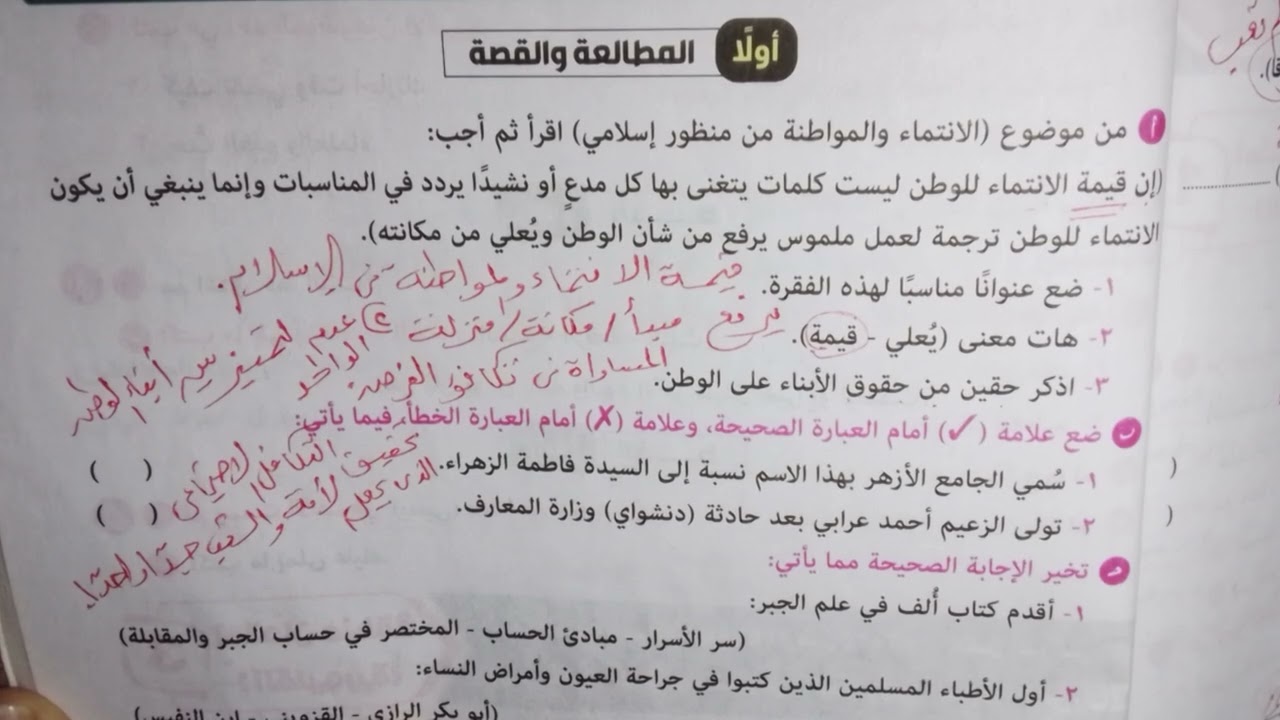 أولًا المطالعة والقصة
أ من موضوع (الانتماء والمواطنة من منظور إسلامي) اقرأ ثم أجب:
(إن قيمة الانتماء للوطن ليست كلمات يتغنى بها كل مدعٍ أو نشيدًا يردد في المناسبات وإنما ينبغي أن يكون
الانتماء للوطن ترجمة لعمل ملموس يرفع من شأن الوطن ويُعلي من مكانته).
١- ضع عنوانًا مناسبًا لهذه الفقرة. قيمة الانتماء والمواطنة في الإسلام.
٢- هات معنى (يُعلي - قيمة). يرفع مبدأ / مكانة / منزلة
٣- اذكر حقين من حقوق الأبناء على الوطن. المساواة في تكافؤ الفرص
عدم التمييز بين أبناء الوطن الواحد
ب ضع علامة (✓) أمام العبارة الصحيحة، وعلامة (✗) أمام العبارة الخطأ، فيما يأتي:
تحقيق التكافل الاجتماعي
١- سُمي الجامع الأزهر بهذا الاسم نسبة إلى السيدة فاطمة الزهراء. ( )
الذي يجعل الأمة
٢- تولى الزعيم أحمد عرابي بعد حادثة (دنشواي) وزارة المعارف. ( )
تخير الإجابة الصحيحة مما يأتي:
١- أقدم كتاب أُلف في علم الجبر:
(سر الأسرار - مبادئ الحساب - المختصر في حساب الجبر والمقابلة)
٢- أول الأطباء المسلمين الذين كتبوا في جراحة العيون وأمراض النساء:
(أبو بكر الرازي - القزويني - ابن النفيس)